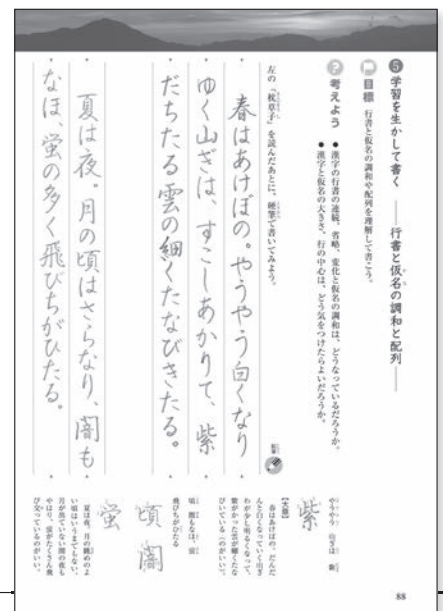 5 学習を生かして書く ――行書と仮名の調和と配列――
目標 行書と仮名の調和や配列を理解して書こう。
考えよう ●漢字の行書の連続、省略、変化と仮名の調和は、どうなっているだろうか。
●漢字と仮名の大きさ、行の中心は、どう気をつけたらよいだろうか。
左の「枕草子」を読んだあとに、硬筆で書いてみよう。
春はあけぼの。やうやう白くなり
ゆく山ぎは、すこしあかりて、紫
だちたる雲の細くたなびきたる。
夏は夜。月の頃はさらなり、闇も
なほ、蛍の多く飛びちがひたる。
やうやう 山ぎは 紫
紫
【大意】
春はあけぼの、だんだ
んと白くなっていく山ぎ
わが少し明るくなって、
紫がかった雲が細くたな
びいている(のがいい)。
頃 闇もなほ、蛍
飛びちがひたる
頃 闇
蛍
夏は夜。月の眺めのよ
い頃はいうまでもない、
月が出ていない闇の夜も
やはり、蛍がたくさん飛
び交っているのがいい。
88